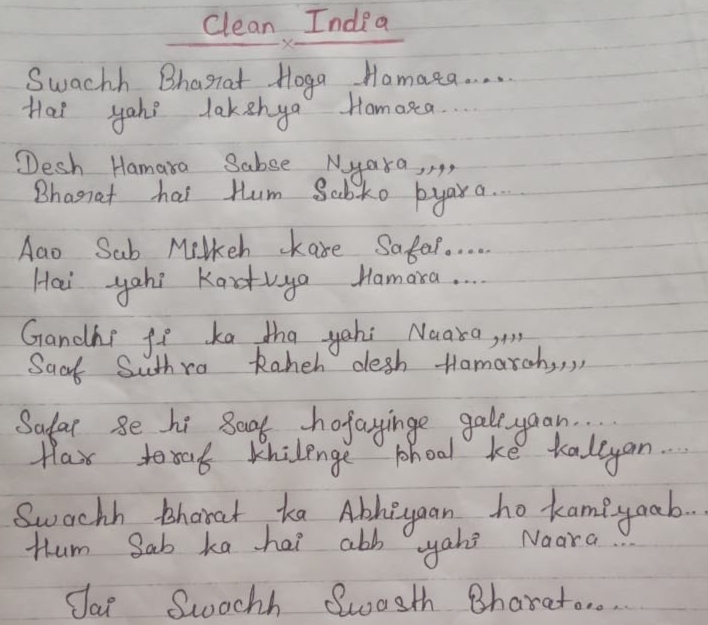 Clean India
Swachh Bharat Hoga Hamara.....
Hai yahi lakshya Hamara....
Desh Hamara Sabse Nyara,,,,
Bharat hai Hum Sabko pyara...
Aao Sab Milkeh kare Safai.....
Hai yahi Kartvya Hamara....
Gandhi ji ka tha yahi Naara,,,,
Saaf Suthra Raheh desh Hamarah,,,,
Safai se hi saaf hojayinge galiyaan....
Har taraf khilinge phool ke kaliyan...
Swachh bharat ka Abhiyaan ho kamiyaab...
Hum Sab ka hai abb yahi Naara...
Jai Swachh Swasth Bharat.....